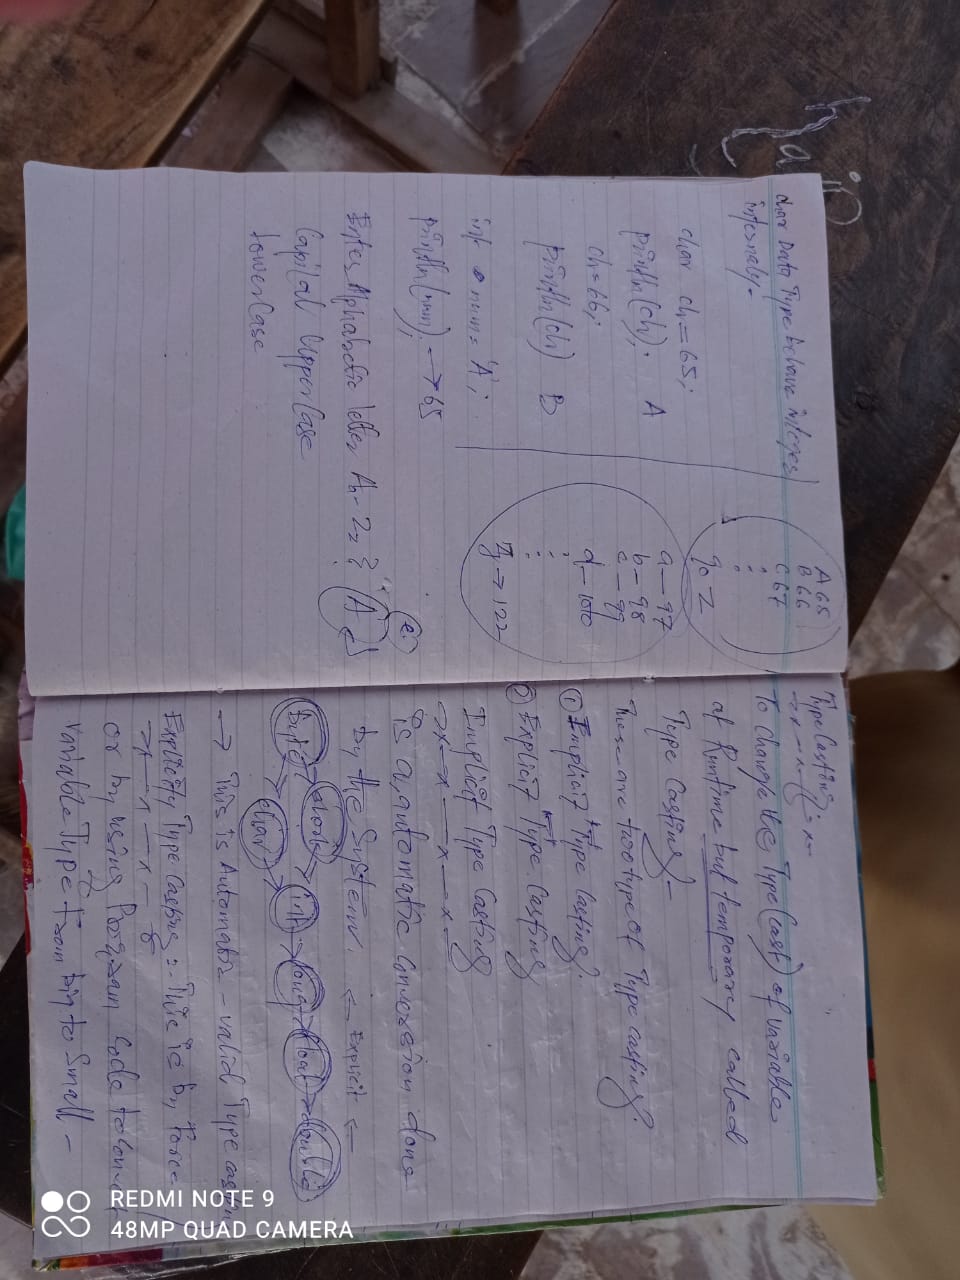 haip
char Data Type behave integer
internaly-
char ch = 65;
println(ch); A
ch = 66;
println(ch) B
int num = 'A';
println(num); → 65
Enter Alphabetic letter Aa - Zz ? A
e.
Capital UpperCase
LowerCase
A 65
B 66
C 67
90 Z
a — 97
b — 98
c — 99
d — 100
Z → 122
Type Casting.
To change the Type (cast) of variable
at Runtime but temporary called
Type Casting -
These are two type of Type casting.
① Implicit "Type Casting".
② Explicit "Type" Casting
Implicit Type Casting
is a automatic conversion done
by the System.
← Explicit ←
byte short char int long float double
→ This is Automatic - valid Type castin
Explicity Type Casting :- This is by Force
or by using Program code to convert
variable Type From big to Small -
REDMI NOTE 9
48MP QUAD CAMERA